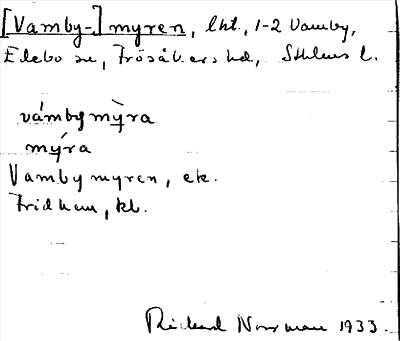 [Vamby-] myren, lht., 1-2 Vamby,
Edebo sn, Frösåkers hd, Sthlms l.
vámbymỳra
mýra
Vambymyren, ek.
Fridhem, kl.
Rickard Norrman 1933.